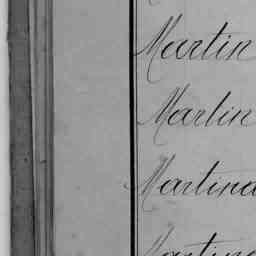 Martin
Martin
Martina